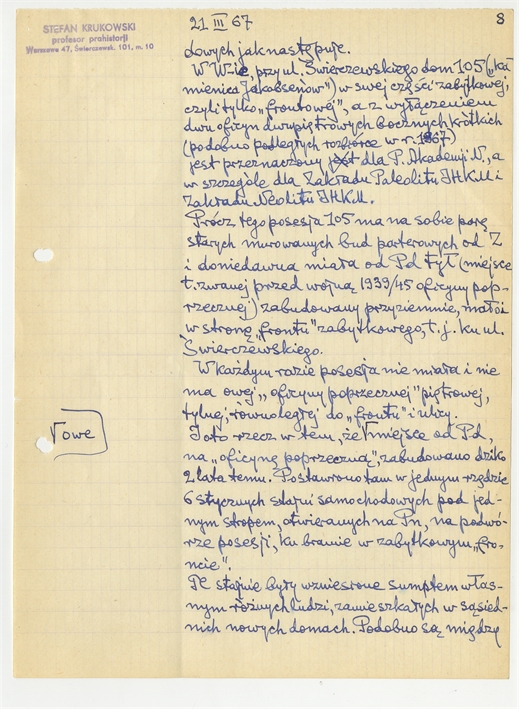 STEFAN KRUKOWSKI
profesor prahistorji
Warszawa 47, Świerczewsk. 101, m. 10
21 III 67
8
dowych jak następuje.
W W-ie, przy ul. Świerczewskiego dom 105 („ka
mienica Jakobsenów") w swej części zabytkowej,
czyli tylko „frontowej", a z wyłączeniem
dwu oficyn dwupiętrowych bocznych krótkich
(podobno podległych rozbiórce w r. 1867)
jest przeznaczony dla P. Akademji N., a
w szczególe dla Zakładu Paleolitu IHKM i
Zakładu Neolitu IHKM.
Prócz tego posesja 105 ma na sobie parę
starych murowanych bud parterowych od Z
i doniedawna miała od Pd tył (miejsce
t. zwanej przed wojną 1939/45 oficyny pop-
rzecznej) zabudowany przyziemnie, małoi
w stronę „frontu" zabytkowego, t. j. ku ul.
Świerczewskiego.
W każdym razie posesja nie miała i nie
ma owej „oficyny poprzecznej" piętrowej,
tylnej, równoległej do „frontu" i ulicy.
Toto rzecz w tem, że Γmiejsce od Pd,
Γowe
na „oficynę poprzeczną", zabudowano dziko
2 lata temu. Postawiono tam w jednym rzędzie
6 stycznych stajni samochodowych pod jed-
nym stropem, otwieranych na Pn, na podwó-
rze posesji, ku bramie w zabytkowym „fro-
ncie".
Te stajnie były wzniesione sumptem włas-
nym różnych ludzi, zamieszkałych w sąsied-
nich nowych domach. Podobno są między